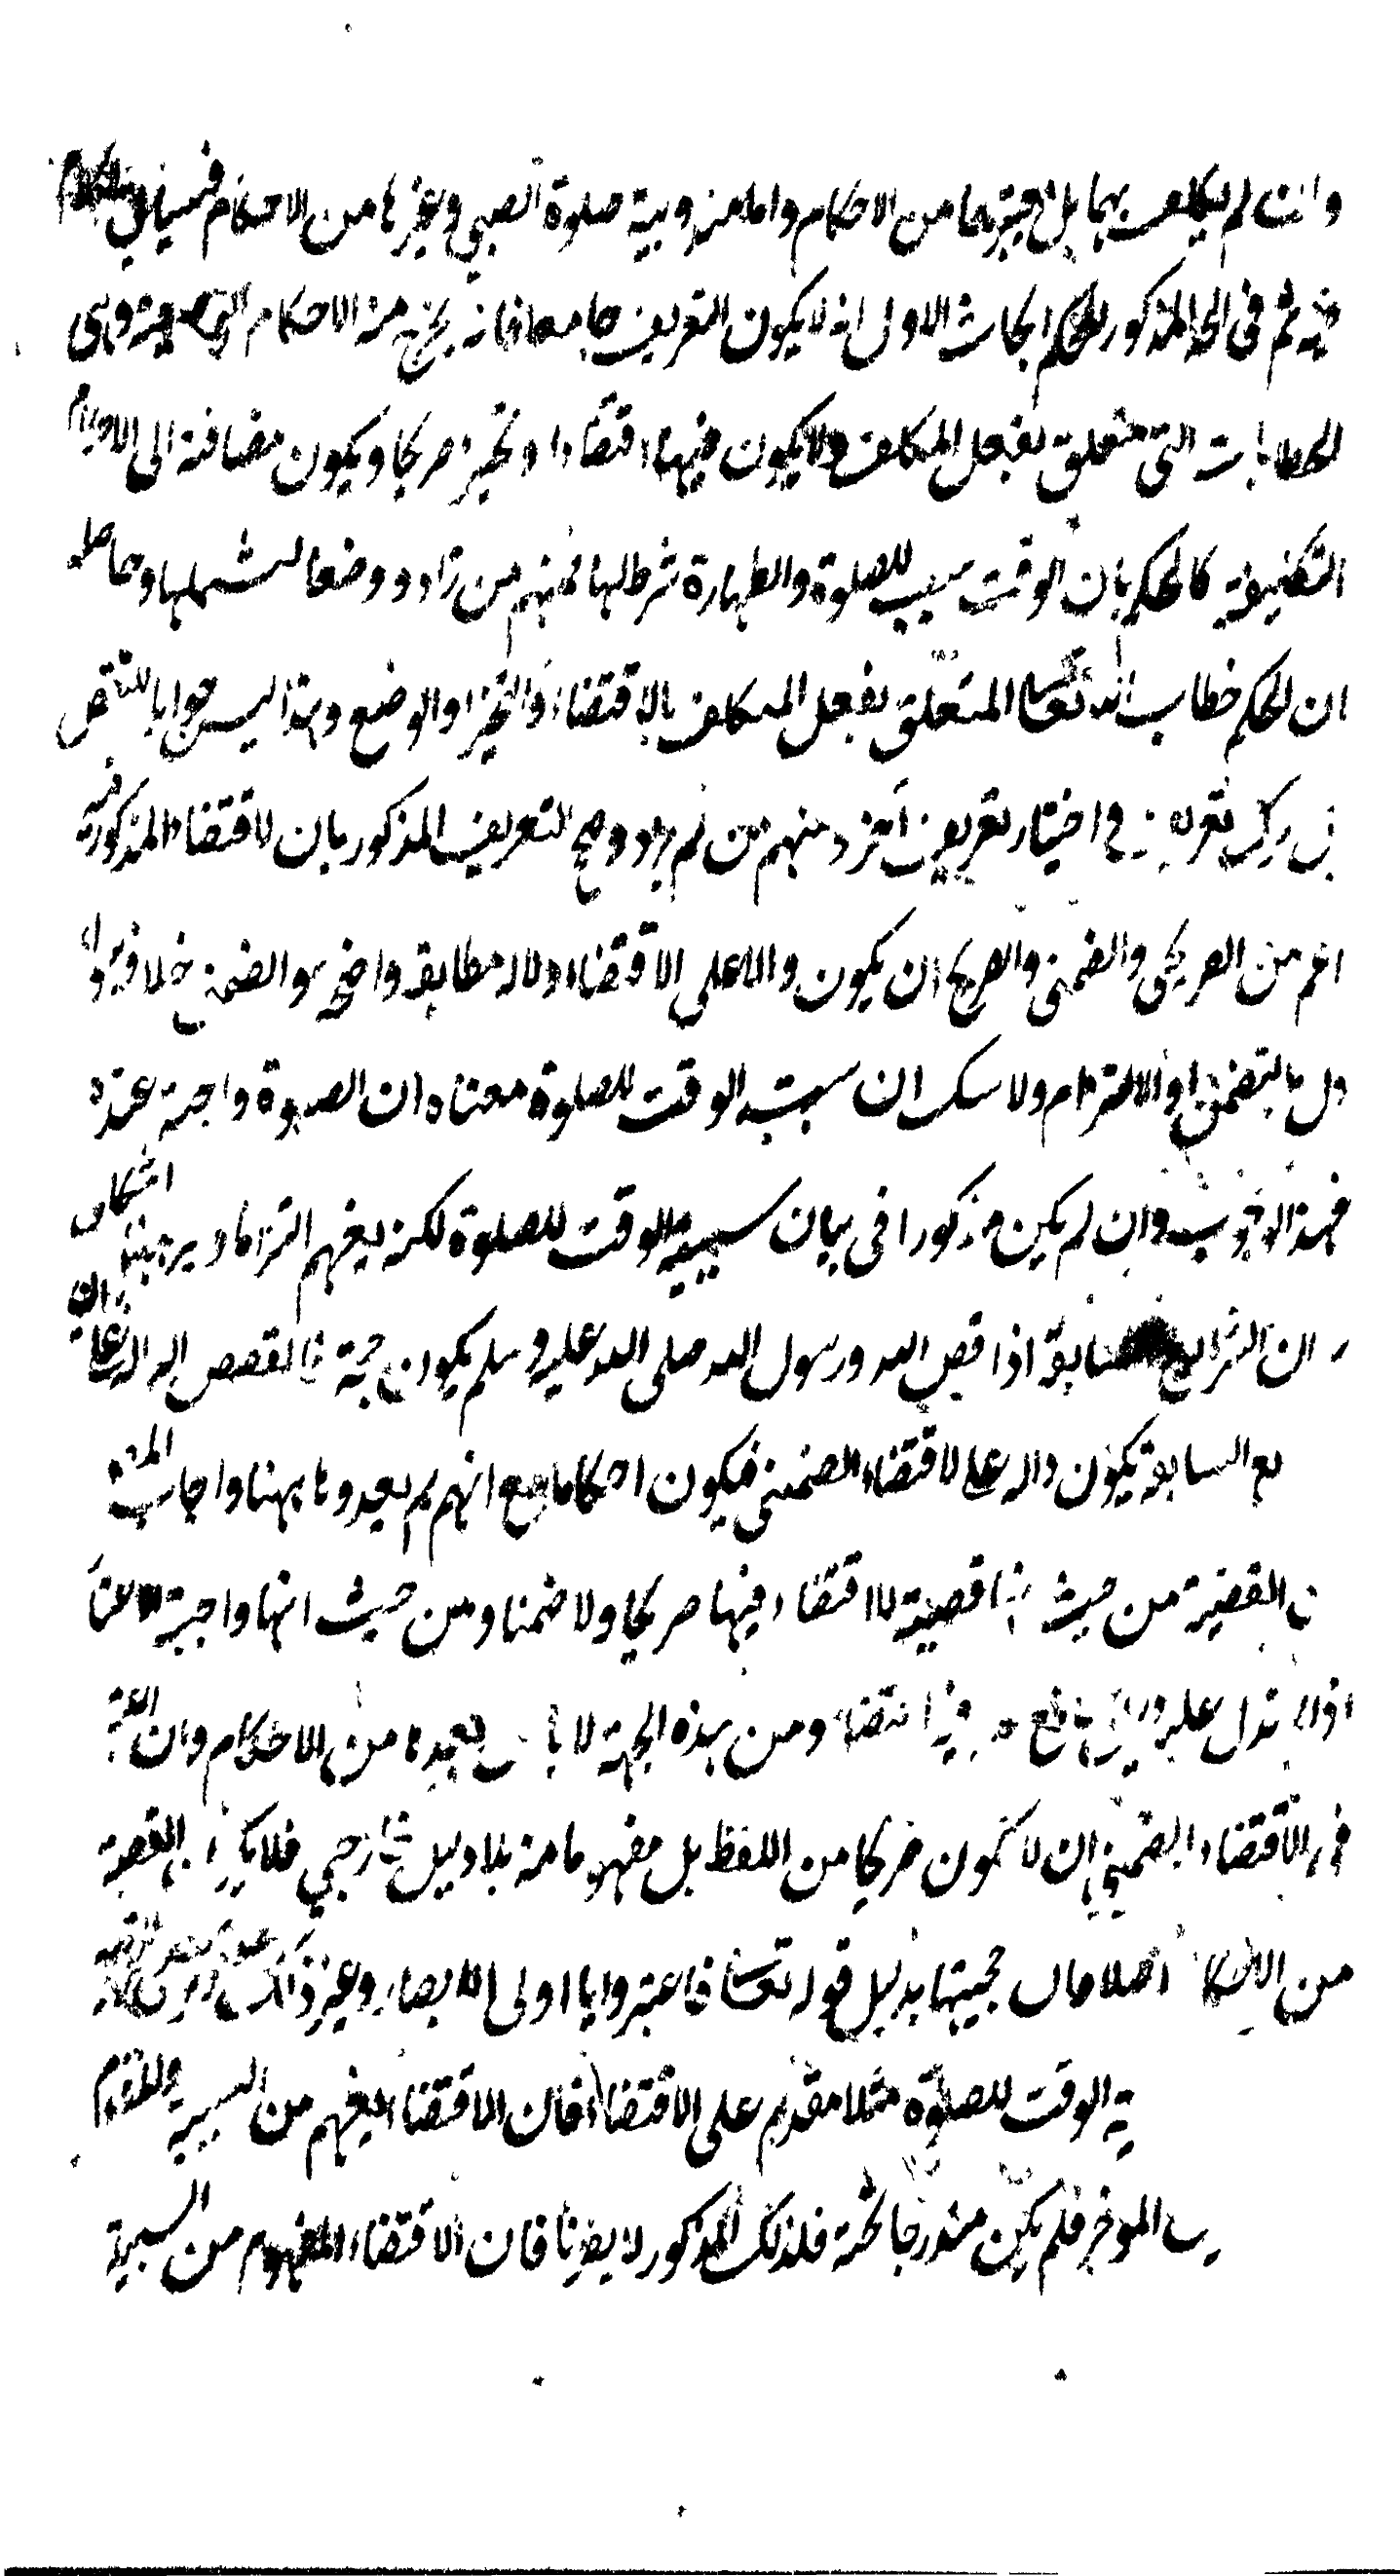 وانت لم يكلف بهما بل بغيرهما من الاحكام واما مندوبية صلوة الصبي وغيرها من الاحكام فسياتي الكلام
فيه ثم في الحد المذكور للحكم ابحاث الاول انه لا يكون التعريف جامعا فانه يخرج منه الاحكام الوضعية وهى
الخطابات التى متعلق بفعل المكلف ولا يكون فيها اقتضاء او تخير صريحا ويكون مضافة الى الاحكام
التكليفية كالحكم بان الوقت سبب للصلوة والطهارة شرط لها فمنهم من زاد او وضعا لشملها وحاصله
ان الحكم خطاب الله تعالى المتعلق بفعل المكلف بالاقتضاء او التخير او الوضع وهذا ليس جوابا للنقض
بل ترك تعريف واختيار تعريف آخر ومنهم من لم يزد وصحح التعريف المذكور بان الاقتضاء المذكور فيه
اعم من الصريحى والضمنى والصريح ان يكون دالا على الاقتضاء دلالة مطابقة واضحة والضمنى خلافه وان
دل بالتضمن او الالتزام ولا شك ان سببية الوقت للصلوة معناه ان الصلوة واجبة عنده
فهذا الوجوب وان لم يكن مذكورا فى بيان سببية الوقت للصلوة لكنه يفهم التزاما ويرد هنا اشكال
ان الشرايع السابقة اذا قص الله ورسول الله صلى الله عليه وسلم يكون حجة فالقصص الدالة على ان
يع السابقة يكون دالة على الاقتضاء الضمنى فيكون احكاما مع انهم لم يعدوها منها واجاب
ن القضية من حيث انها قضية لا اقتضاء فيها صريحا ولا ضمنا ومن حيث انها واجبة الاعتبار
ومن هذه الجهة لا باس بعدها من الاحكام وان
فى الاقتضاء الضمنى ان لا تكون صريحا من اللفظ بل مفهوما منه بلا دليل خارجى فلا يكون القصة
من الاحكام اصلا فان حجيتها بدليل قوله تعالى فاعتبروا يا اولى الابصار وغير ذلك
ية الوقت للصلوة مثلا مقدم على الاقتضاء فان الاقتضاء يفهم من السببية والمقدم
يب الموخر فلم يكن مندرجا تحته فلذلك المذكور لا يضرنا فان الاقتضاء المفهوم من السببية